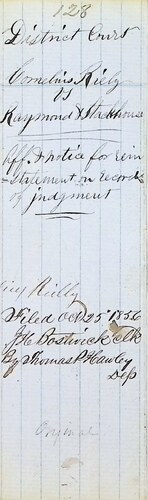 123
District Court
Cornelius Riely
vs
Raymond & Stackhouse
Aff. & notice for rein
=statement on records
of judgment
Reilly
Filed Oct 25th 1856
J. H. Bostwick Clk
By Thomas P Hawley
Dep
Original